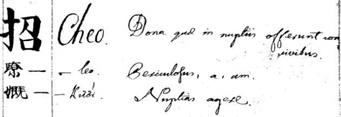 招 Cheo. Dona quæ in nuptiis offerunt con
vivibus.
嘹一 – leo. Periculosus, a, um.
嘅一 – Kiái. Nuptias agere.